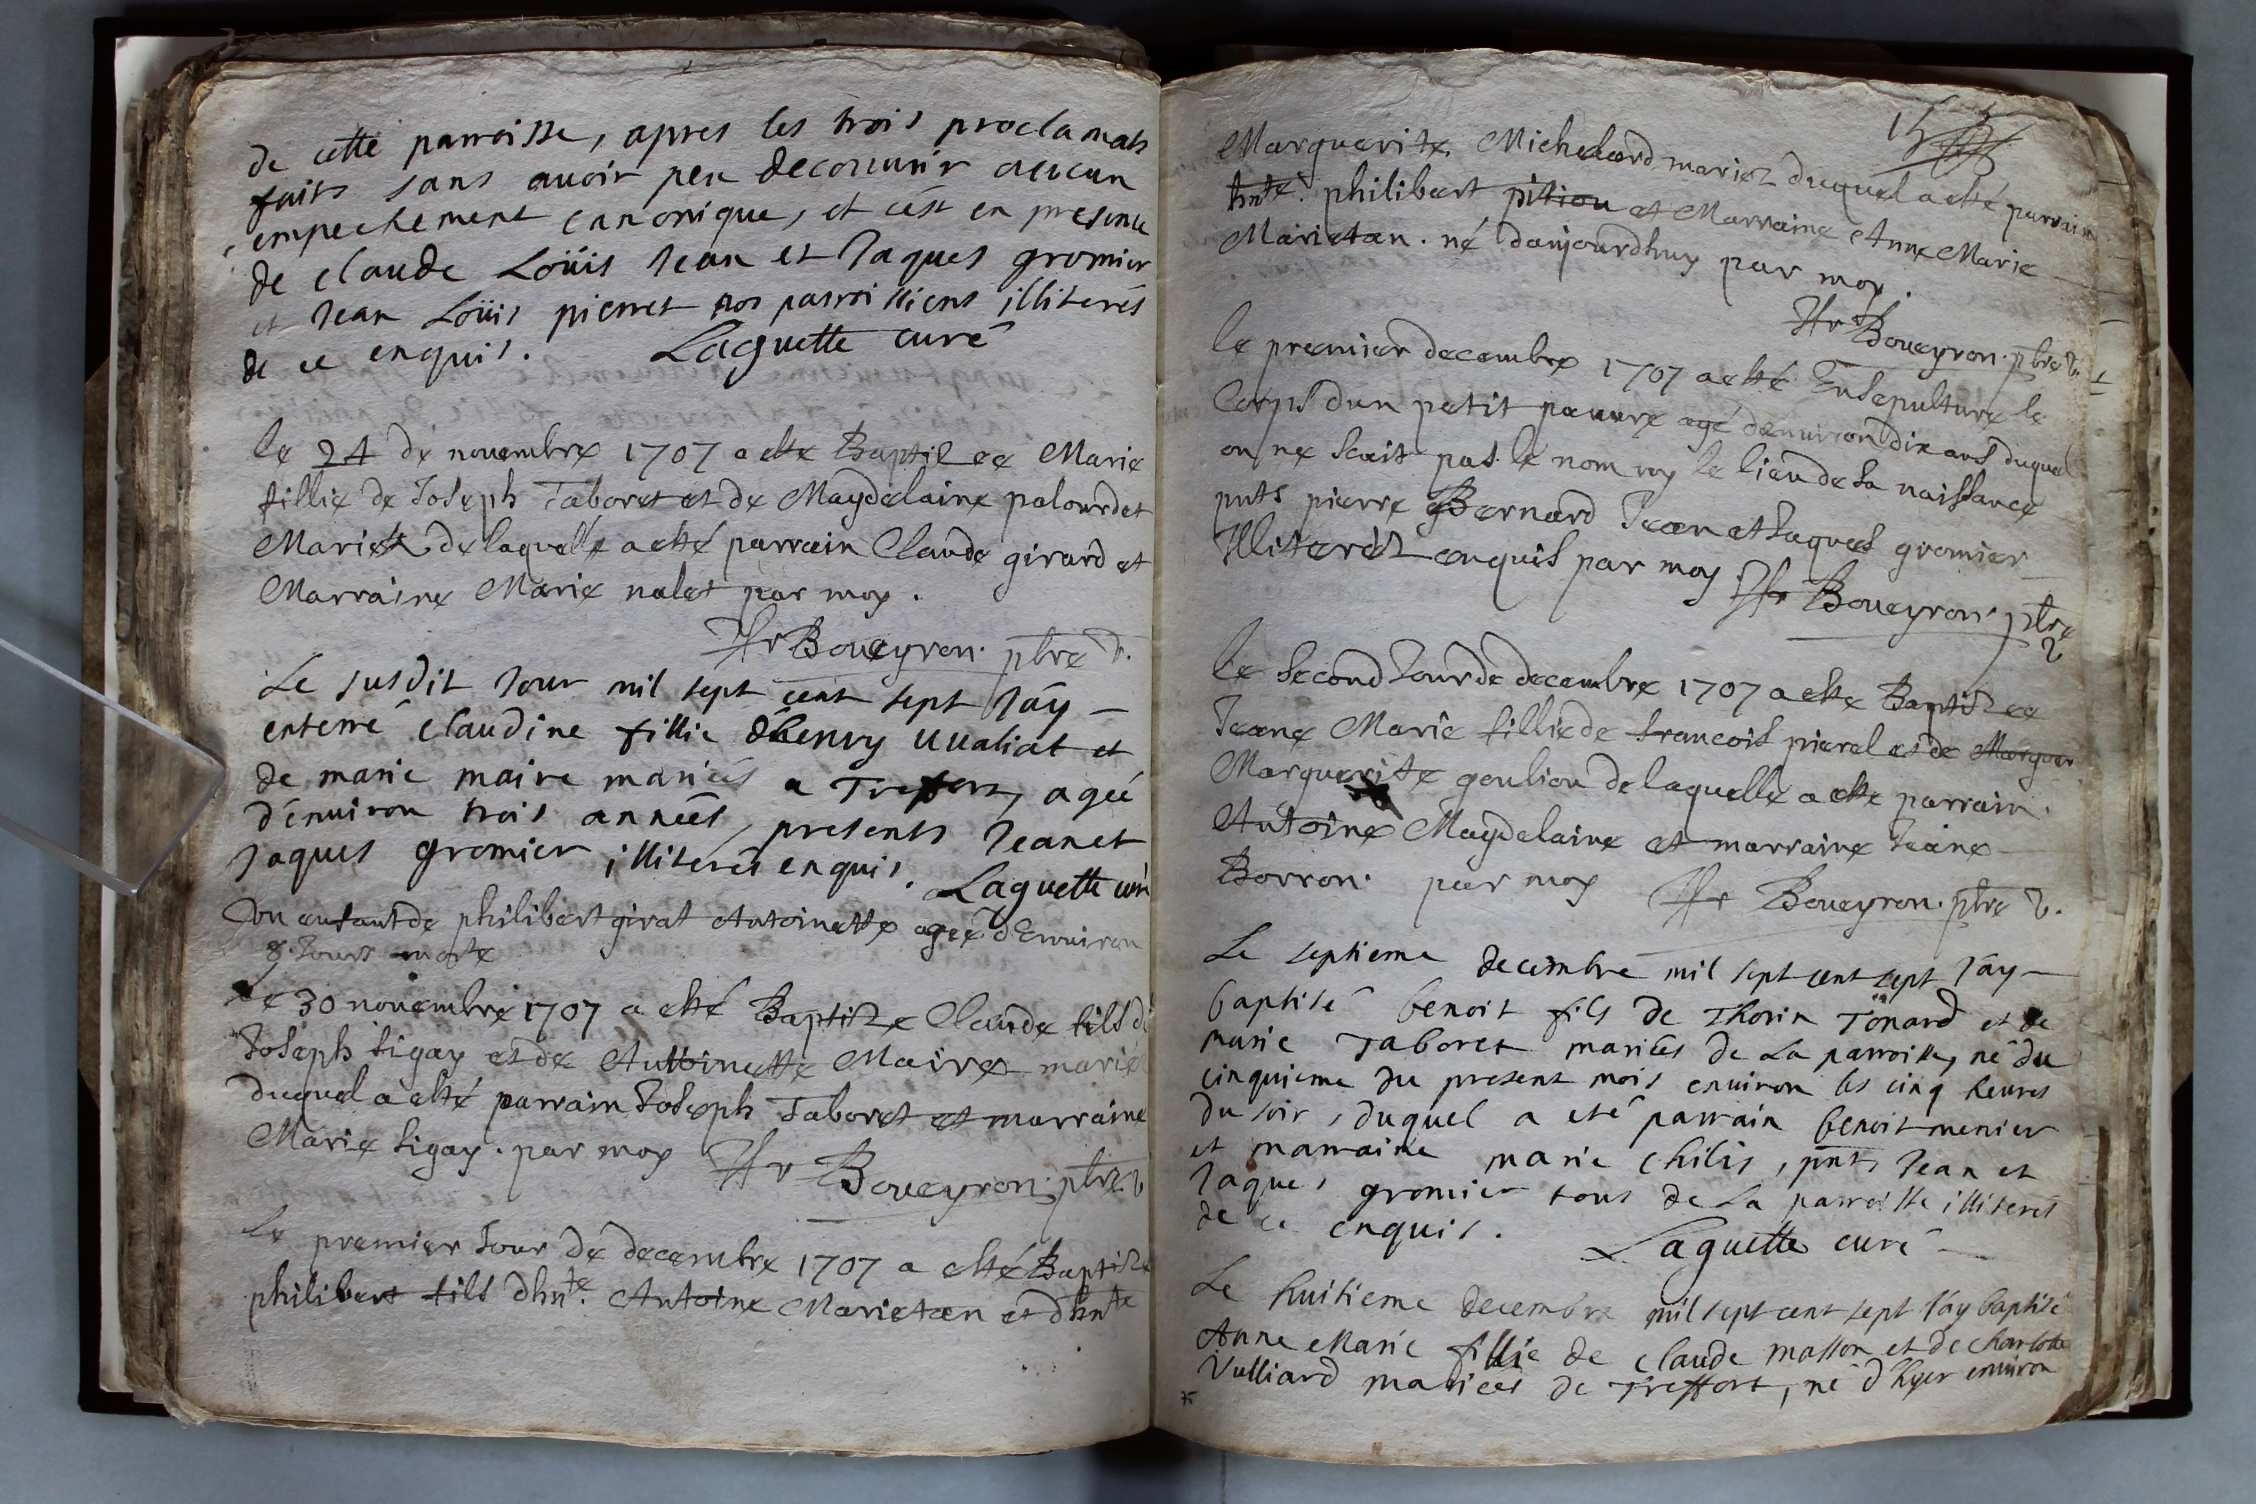 de cette parroisse, apres les trois proclamats
faits sans avoir peu decouurir aucun
empechement canonique, et cést en presence
de claude Loüis Jean et Jaques gromier
et Jean Loüis pierret nos parroissiens illiterés
de ce enquis. Laguette curé
le 24 de novembre 1707 a este Baptizee Marie
fillie de Joseph Taboret et de Magdelaine palourdet
Mariez de laquelle a esté parrain Claude girard et
Marraine Marie nalet par moy.
Boueyron. ptre v.
Le susdit Jour mil sept cent sept Jáy
enterré claudine fillie dhenry uualiat et
de marie maire mariés a Treffort, agée
dénuiron trois années, presents Jean et
Jaques gromier illiterés enquis. Laguette curé
Un enfant de philibert girat Antoinette agée dEnuiron
8 Jours morte
Le 30 novembre 1707 a esté Baptize Claude fils de
Joseph sigay et de Antoinette Maire mariés
duquel a esté parrain Joseph Taboret et marraine
Marie sigay. par moy Boueyron. ptre v
Le premier Jour de decembre 1707 a esté Baptize
philibert fils dhnte. Antoine Marietan et dhnte
15
Marguerite Michelard mariez duquel a esté parrain
hnte. philibert pitiou et Marraine Anne Marie
Marietan. né daujourdhuy par moy.
Boueyron. ptre v.
le premier decembre 1707 a esté Ensepulturé le
Corps dun petit pauure agé denuiron dix ans duquel
on ne scait pas le nom ny le lieu de sa naissance
pnts pierre Bernard Jean et Jaques gromier
Illiteréz enquis par moy Boueyron. ptre
v
Le second Jour de decembre 1707 a este Baptizee
Jeane Marie fillie de francois pierel et de Marguer
Marguerite goulion de laquelle a este parrain.
Antoine Magdelaine et marraine Jeane
Borron. par moy Boueyron. ptre v.
Le septieme decembre mil sept cent sept Jáy
baptisé benoit fils de Thorin Tonard et de
marie Taboret mariés de La parroisse, né du
cinquieme du present mois enuiron les cinq heures
du soir, duquel a eté parrain benoit menier
et marraine marie chilis, pnts Jean et
Jaques gromier tous de La parroisse illiterés
de ce enquis. Laguette curé
Le huitieme decembre mil sept cent sept Jáy baptisé
Anne Marie fillie de claude masson et de charlotte
Vulliard mariées de Treffort, né d'hyer enuiron